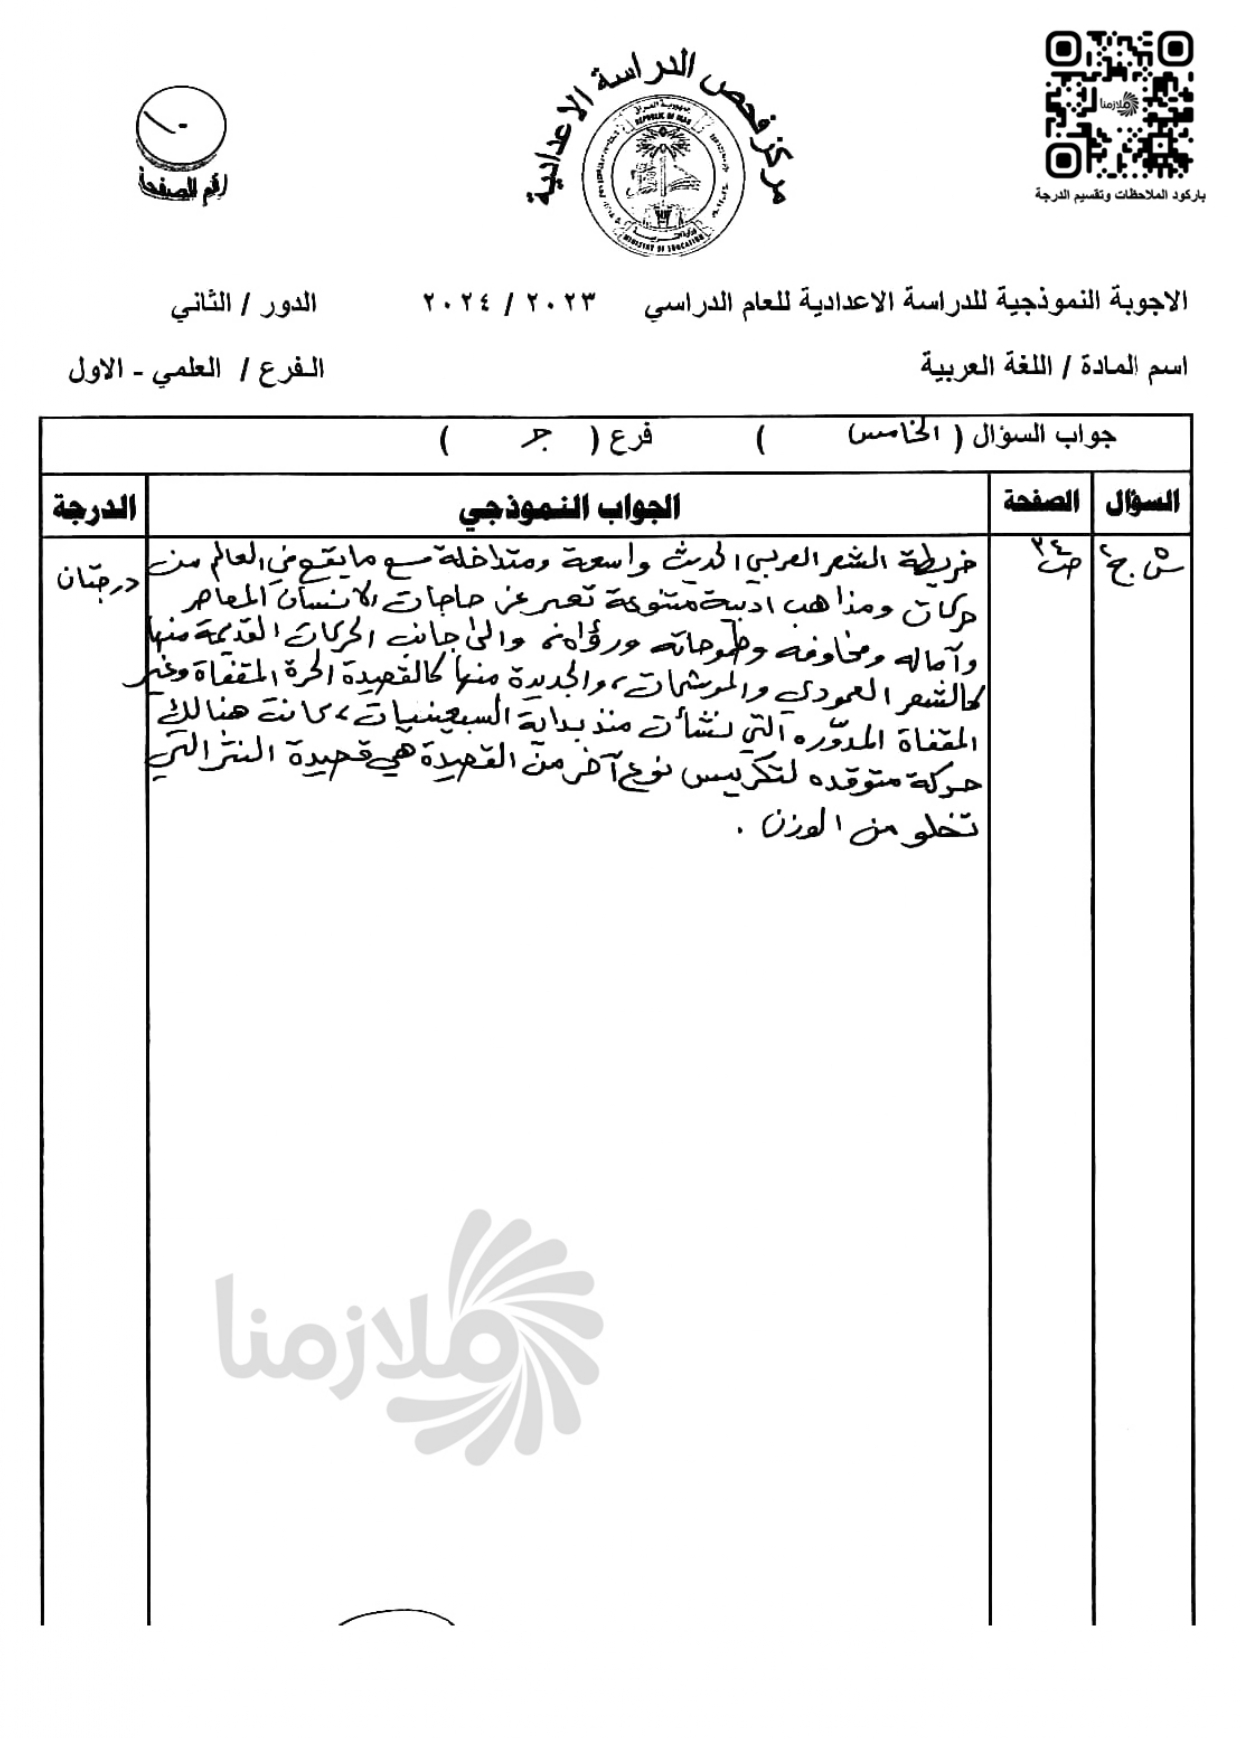 مركز فحص الدراسة الاعدادية
جمهورية العراق
REPUBLIC OF IRAQ
وزارة التربية
MINISTRY OF EDUCATION
ملازمنا
باركود الملاحظات وتقسيم الدرجة
رقم الصفحة
الاجوبة النموذجية للدراسة الاعدادية للعام الدراسي ٢٠٢٣ / ٢٠٢٤ الدور / الثاني
اسم المادة / اللغة العربية الفرع / العلمي - الاول
جواب السؤال ( الخامس ) فرع ( جـ )
السؤال الصفحة الجواب النموذجي الدرجة
خريطة الشعر العربي الحديث واسعة ومتداخلة مع مايقع في العالم من
حركات ومذاهب ادبية متنوعة تعبر عن حاجات الانسان المعاصر
وآماله ومخاوفه وطموحاته ورؤاه، والى جانب الحركات القديمة منها
كالشعر العمودي والموشحات، والجديدة منها كالقصيدة الحرة المقفاة وغير
المقفاة المدوّره التي نشأت منذ بداية السبعينيات، كانت هنالك
حركة متوقده لتكريس نوع آخر من القصيدة هي قصيدة النثر التي
تخلو من الوزن .
س٥ ج٢
ص٣٤
درجتان
ملازمنا